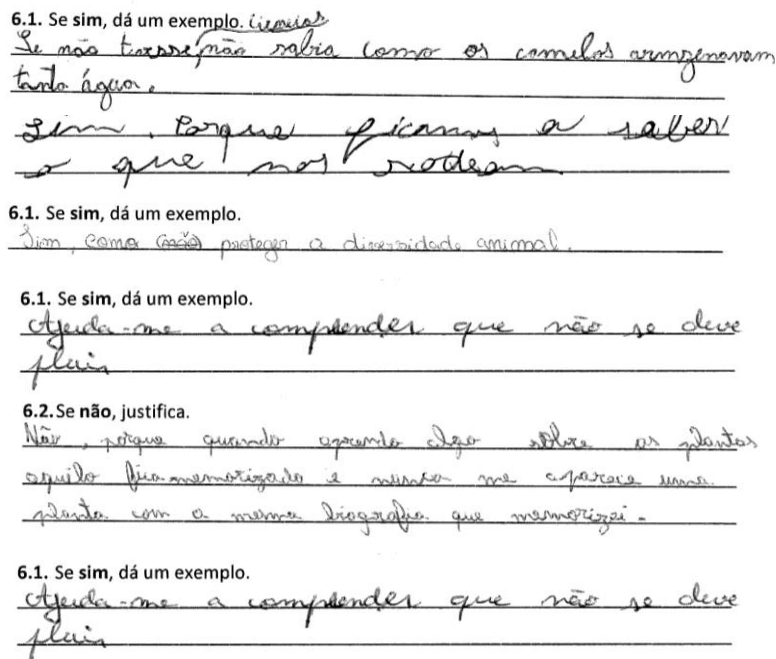 6.1. Se sim, dá um exemplo. Ciencias
Se não tivesse, não sabia como os camelos armzenavam
tanta água.
Sim. Porque ficamos a saber
o que nos rodeam
6.1. Se sim, dá um exemplo.
Sim, como (não) proteger a diversidade animal.
6.1. Se sim, dá um exemplo.
Ajuda-me a comprender que não se deve
pluir
6.2. Se não, justifica.
Não, porque quando aprendo algo sobre as plantas
aquilo fica memorizado e nunca me aparece uma
planta com a mesma biografia que memorizei.
6.1. Se sim, dá um exemplo.
Ajuda-me a comprender que não se deve
pluir